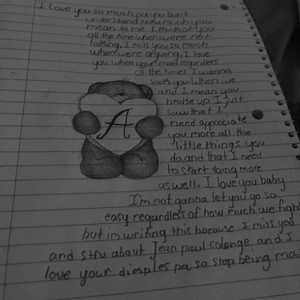 I love you so much pa you don't
understand how much you
mean to me. I think of you
all the time when were not
talking, I miss you so much
when were arguing, I love
you when your mad regardless
of the times I wanna
sock you when we
and I mean you
broke up I just
saw that I
A
need appreciate
you more all the
little things you
do, and that I need
to start doing more
as well. I love you baby
I'm not gonna let you go so
easy regardless of how much we fight
but im writing this because I miss you
and stfu about jean paul colonge and I
love your dimples pa, so stop being